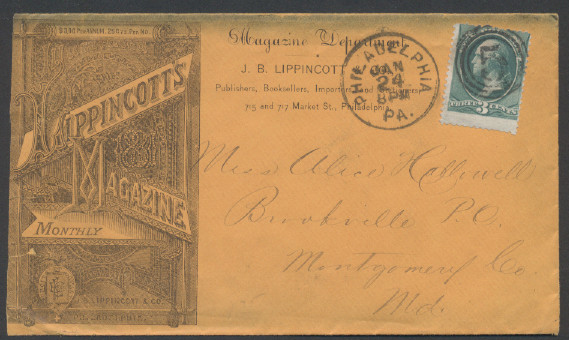 $3.00 PER ANNUM, 25 Cts. PER NO.
LIPPINCOTT'S
MAGAZINE
MONTHLY
J.B. LIPPINCOTT & CO.
PHILADELPHIA.
Magazine Department
J. B. LIPPINCOTT
Publishers, Booksellers, Importers and Stationers
715 and 717 Market St., Philadelphia.
PHILADELPHIA
JAN
24
8 PM
PA.
THREE 3 CENTS
Miss Alice Hallowell
Brookville P.O.
Montgomery Co.
Md.